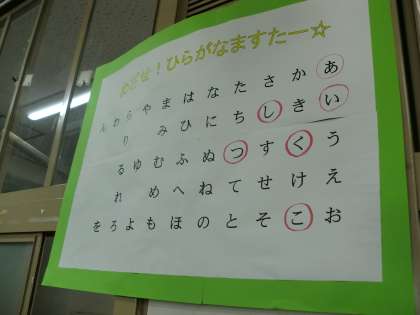 めざせ！ひらがなますたー☆
あいうえお
かきくけこ
さしすせそ
たちつてと
なにぬねの
はひふへほ
まみむめも
やゆよ
らりるれろ
わを
ん